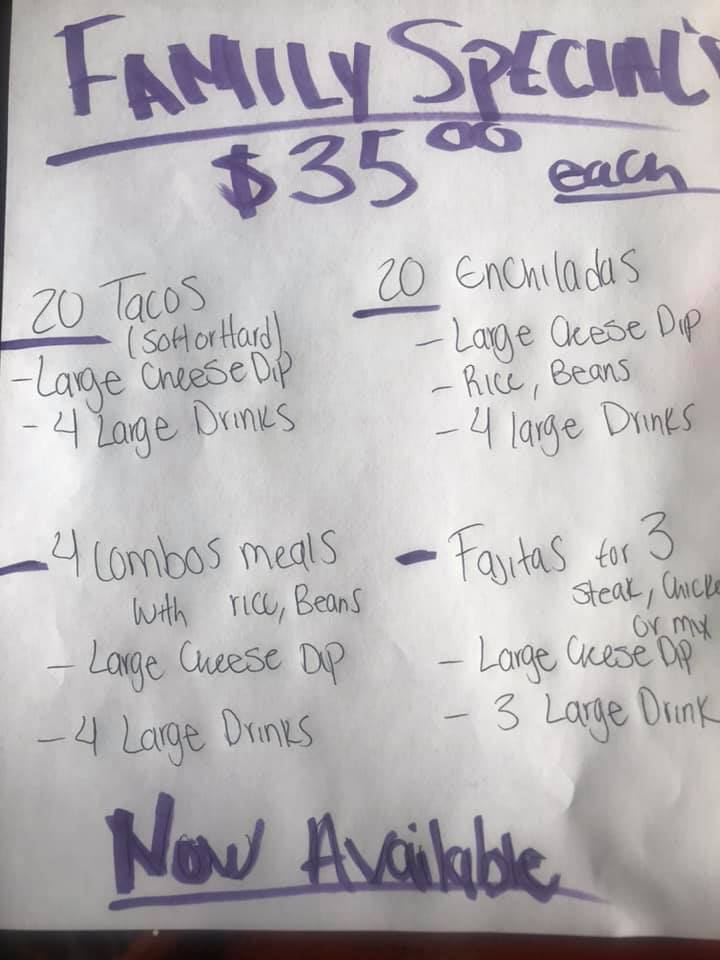 FAMILY SPECIAL'S
$35.00 each
20 Tacos
(Soft or Hard)
- Large Cheese Dip
- 4 Large Drinks
20 Enchiladas
- Large Cheese Dip
- Rice, Beans
- 4 large Drinks
- 4 Combos meals
with rice, Beans
- Large Cheese Dip
- 4 Large Drinks
- Fajitas for 3
Steak, Chicke
or mix
- Large Cheese Dip
- 3 Large Drink
Now Available